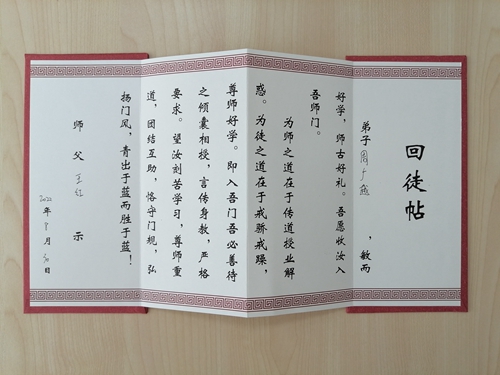 回徒帖
弟子周广，敏而
好学，师古好礼。吾愿收汝入
吾师门。
为师之道在于传道授业解
惑。为徒之道在于戒骄戒躁，
尊师好学。即入吾门吾必善待
之倾囊相授，言传身教，严格
要求。望汝刻苦学习，尊师重
道，团结互助，恪守门规，弘
扬门风，青出于蓝而胜于蓝！
师父王红示
2022年8月30日